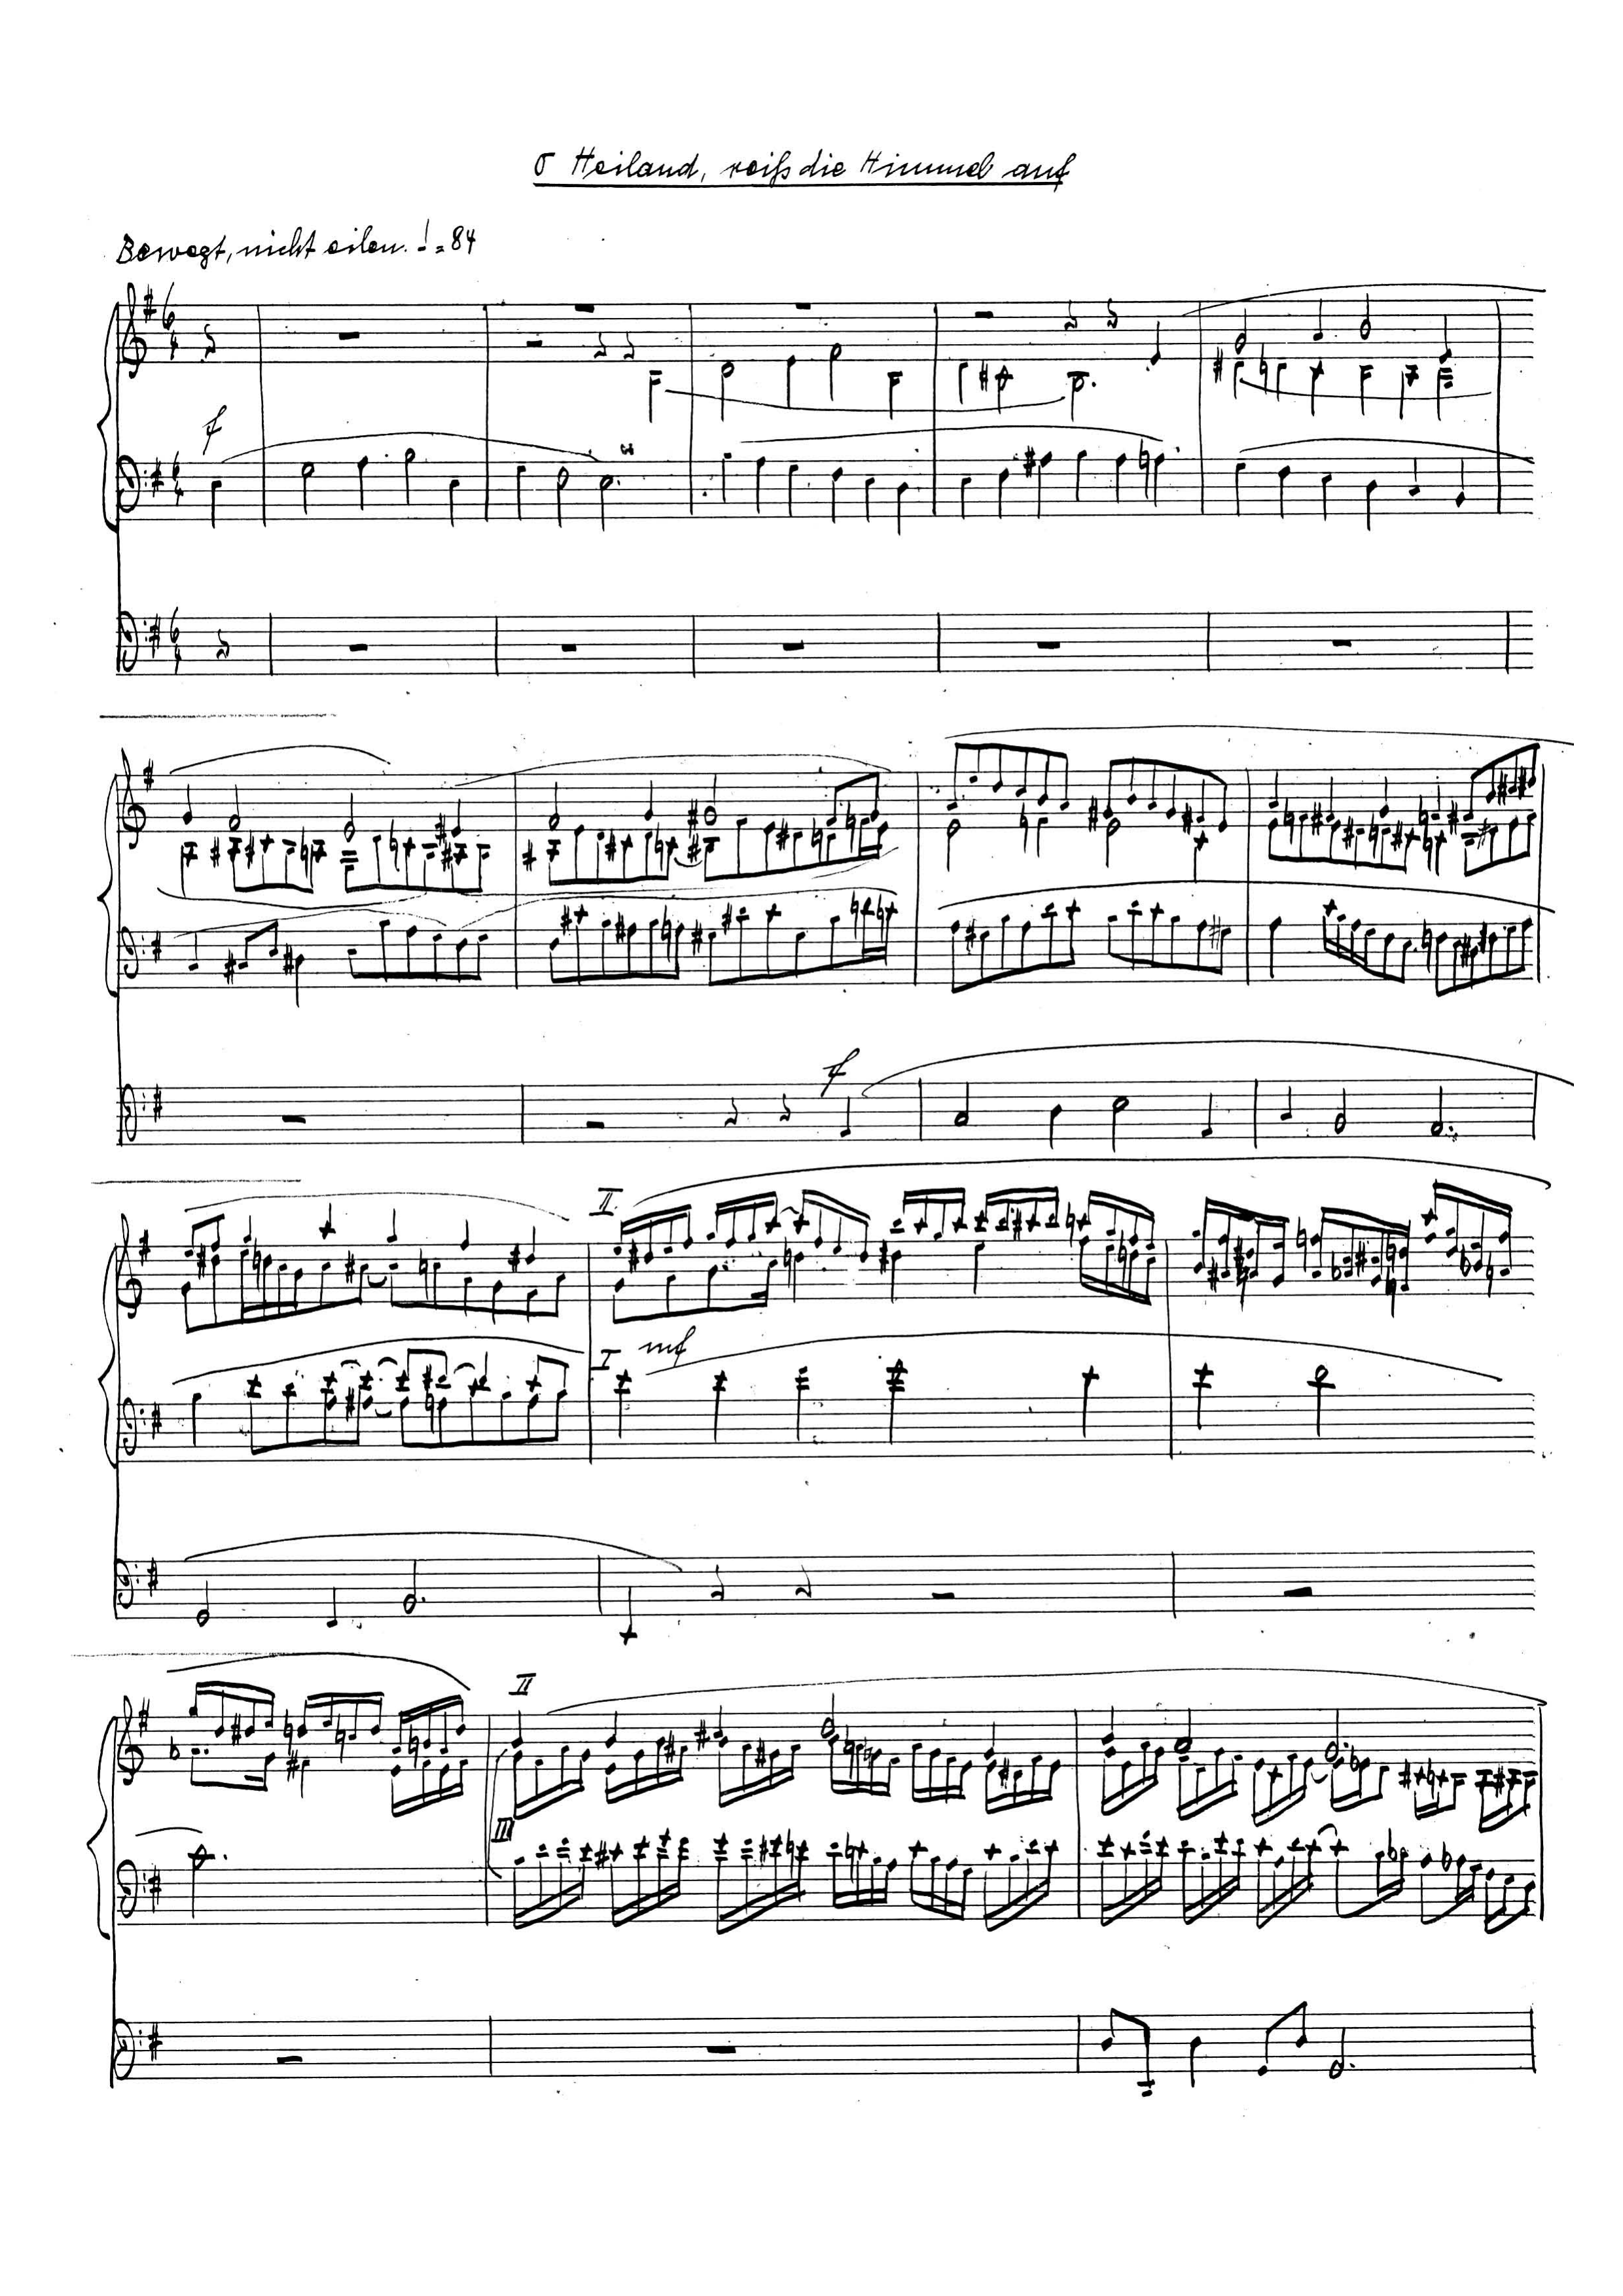 O Heiland, reiß die Himmel auf
Bewegt, nicht eilen. ♩. = 84
6
4
f
6
4
6
4
f
II
I mf
II
III